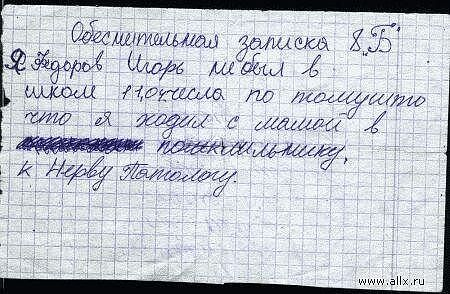 Обеснительная записка 8 "Б"
Я Федоров Игорь не был в
школ 11,04 числа по томушто
что я ходил с мамой в
к Нерву Патологу.
www.allx.ru